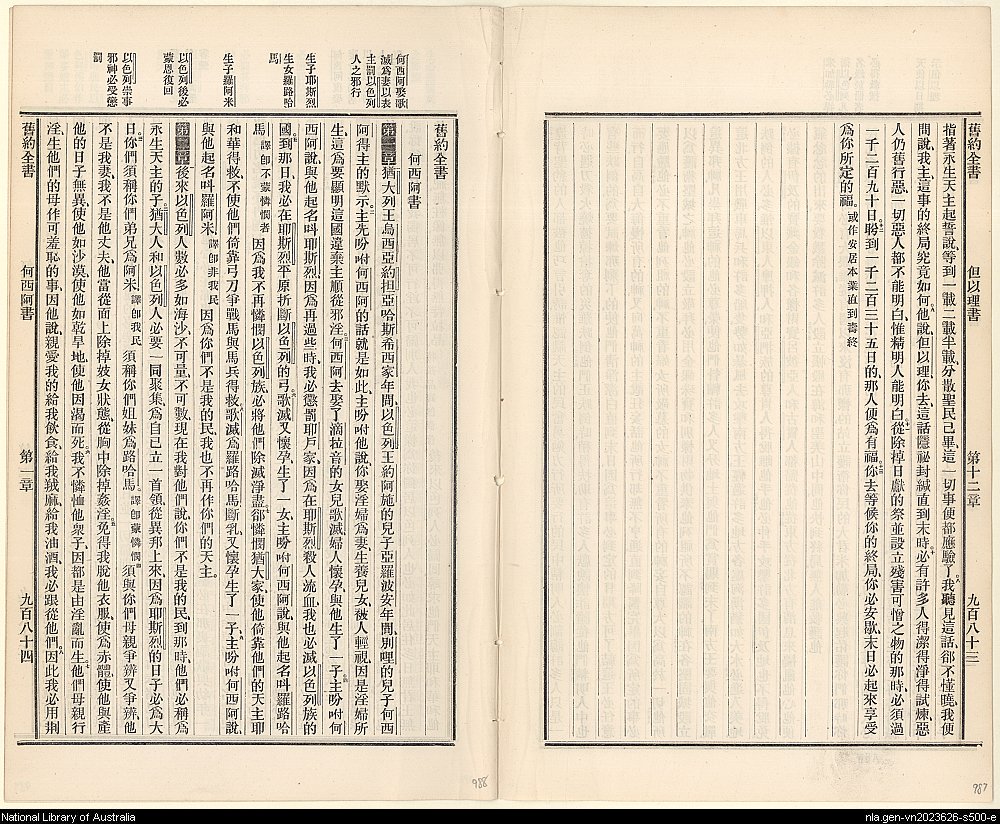 舊約全書　但以理書　第十二章　九百八十三
指著永生天主起誓說、等到一載二載半載、分散聖民已畢、這一切事便都應驗了、我聽見這話、卻不懂曉、我便
問說、我主、這事的終局究竟如何、他說、但以理、你去、這話隱祕封緘直到末時、必有許多人得潔得淨得試煉、惡
人仍舊行惡、一切惡人都不能明白、惟精明人能明白、從除掉日獻的祭、並設立殘害可憎之物的那時、必須過
一千二百九十日、盼到一千三百三十五日的那人、便爲有福、你去等候你的終局、你必安歇、末日必起來享受
爲你所定的福。或作安居本業直到壽終
舊約全書
何西阿書
何西阿娶歌滅爲妻以表主罰以色列人之邪行
第一章猶大列王烏西亞、約坦、亞哈斯、希西家年間、以色列王約阿施的兒子亞羅波安年間、別哩的兒子何西
阿得主的默示、主先吩咐何西阿的話就是如此、主吩咐他說、你娶淫婦爲妻、生養兒女、被人輕視、因是淫婦所
生、這爲要顯明這國違棄主、順從邪淫、何西阿去娶了滴拉音的女兒歌滅、婦人懷孕、與他生了一子、主吩咐何
生子耶斯烈
西阿說、與他起名呌耶斯烈、因爲再過些時、我必懲罰耶戶家、因爲在耶斯烈殺人流血、我也必滅以色列族的
生女羅路哈馬
國、到那日我必在耶斯烈平原折斷以色列的弓、歌滅又懷孕生了一女、主吩咐何西阿說、與他起名呌羅路哈
馬、譯卽不蒙憐憫者因爲我不再憐憫以色列族、必將他們除滅淨盡、卻憐憫猶大家、使他倚靠他們的天主耶
生子羅阿米
和華得救、不使他們倚靠弓刀爭戰馬與馬兵得救、歌滅爲羅路哈馬斷乳、又懷孕生了一子、主吩咐何西阿說、
與他起名呌羅阿米、譯卽非我民因爲你們不是我的民、我也不再作你們的天主。
以色列後必蒙恩復回
第二章後來以色列人數必多如海沙、不可量、不可數、現在我對他們說、你們不是我的民、到那時他們必稱爲
永生天主的子、猶大人和以色列人必要一同聚集、爲自己立一首領、從異邦上來、因爲耶斯烈的日子必爲大
以色列崇事邪神必受懲罰
日、你們須稱你們弟兄爲阿米、譯卽我民須稱你們姐妹爲路哈馬、譯卽蒙憐憫須與你們母親爭辨又爭辨、他
不是我妻、我不是他丈夫、他當從面上除掉妓女狀態、從胸中除掉姦淫、免得我脫他衣服、使爲赤體、使他與產
他的日子無異、使他如沙漠、使他如乾旱地、使他因渴而死、我不憐恤他衆子、因都是由淫亂而生、他們母親行
淫、生他們的母作可羞恥的事、因他說、親愛我的給我飲食、給我羢麻、給我油酒、我必跟從他們、因此我必用荆
舊約全書　何西阿書　第一章　九百八十四
988
987
National Library of Australia
nla.gen-vn2023626-s500-e